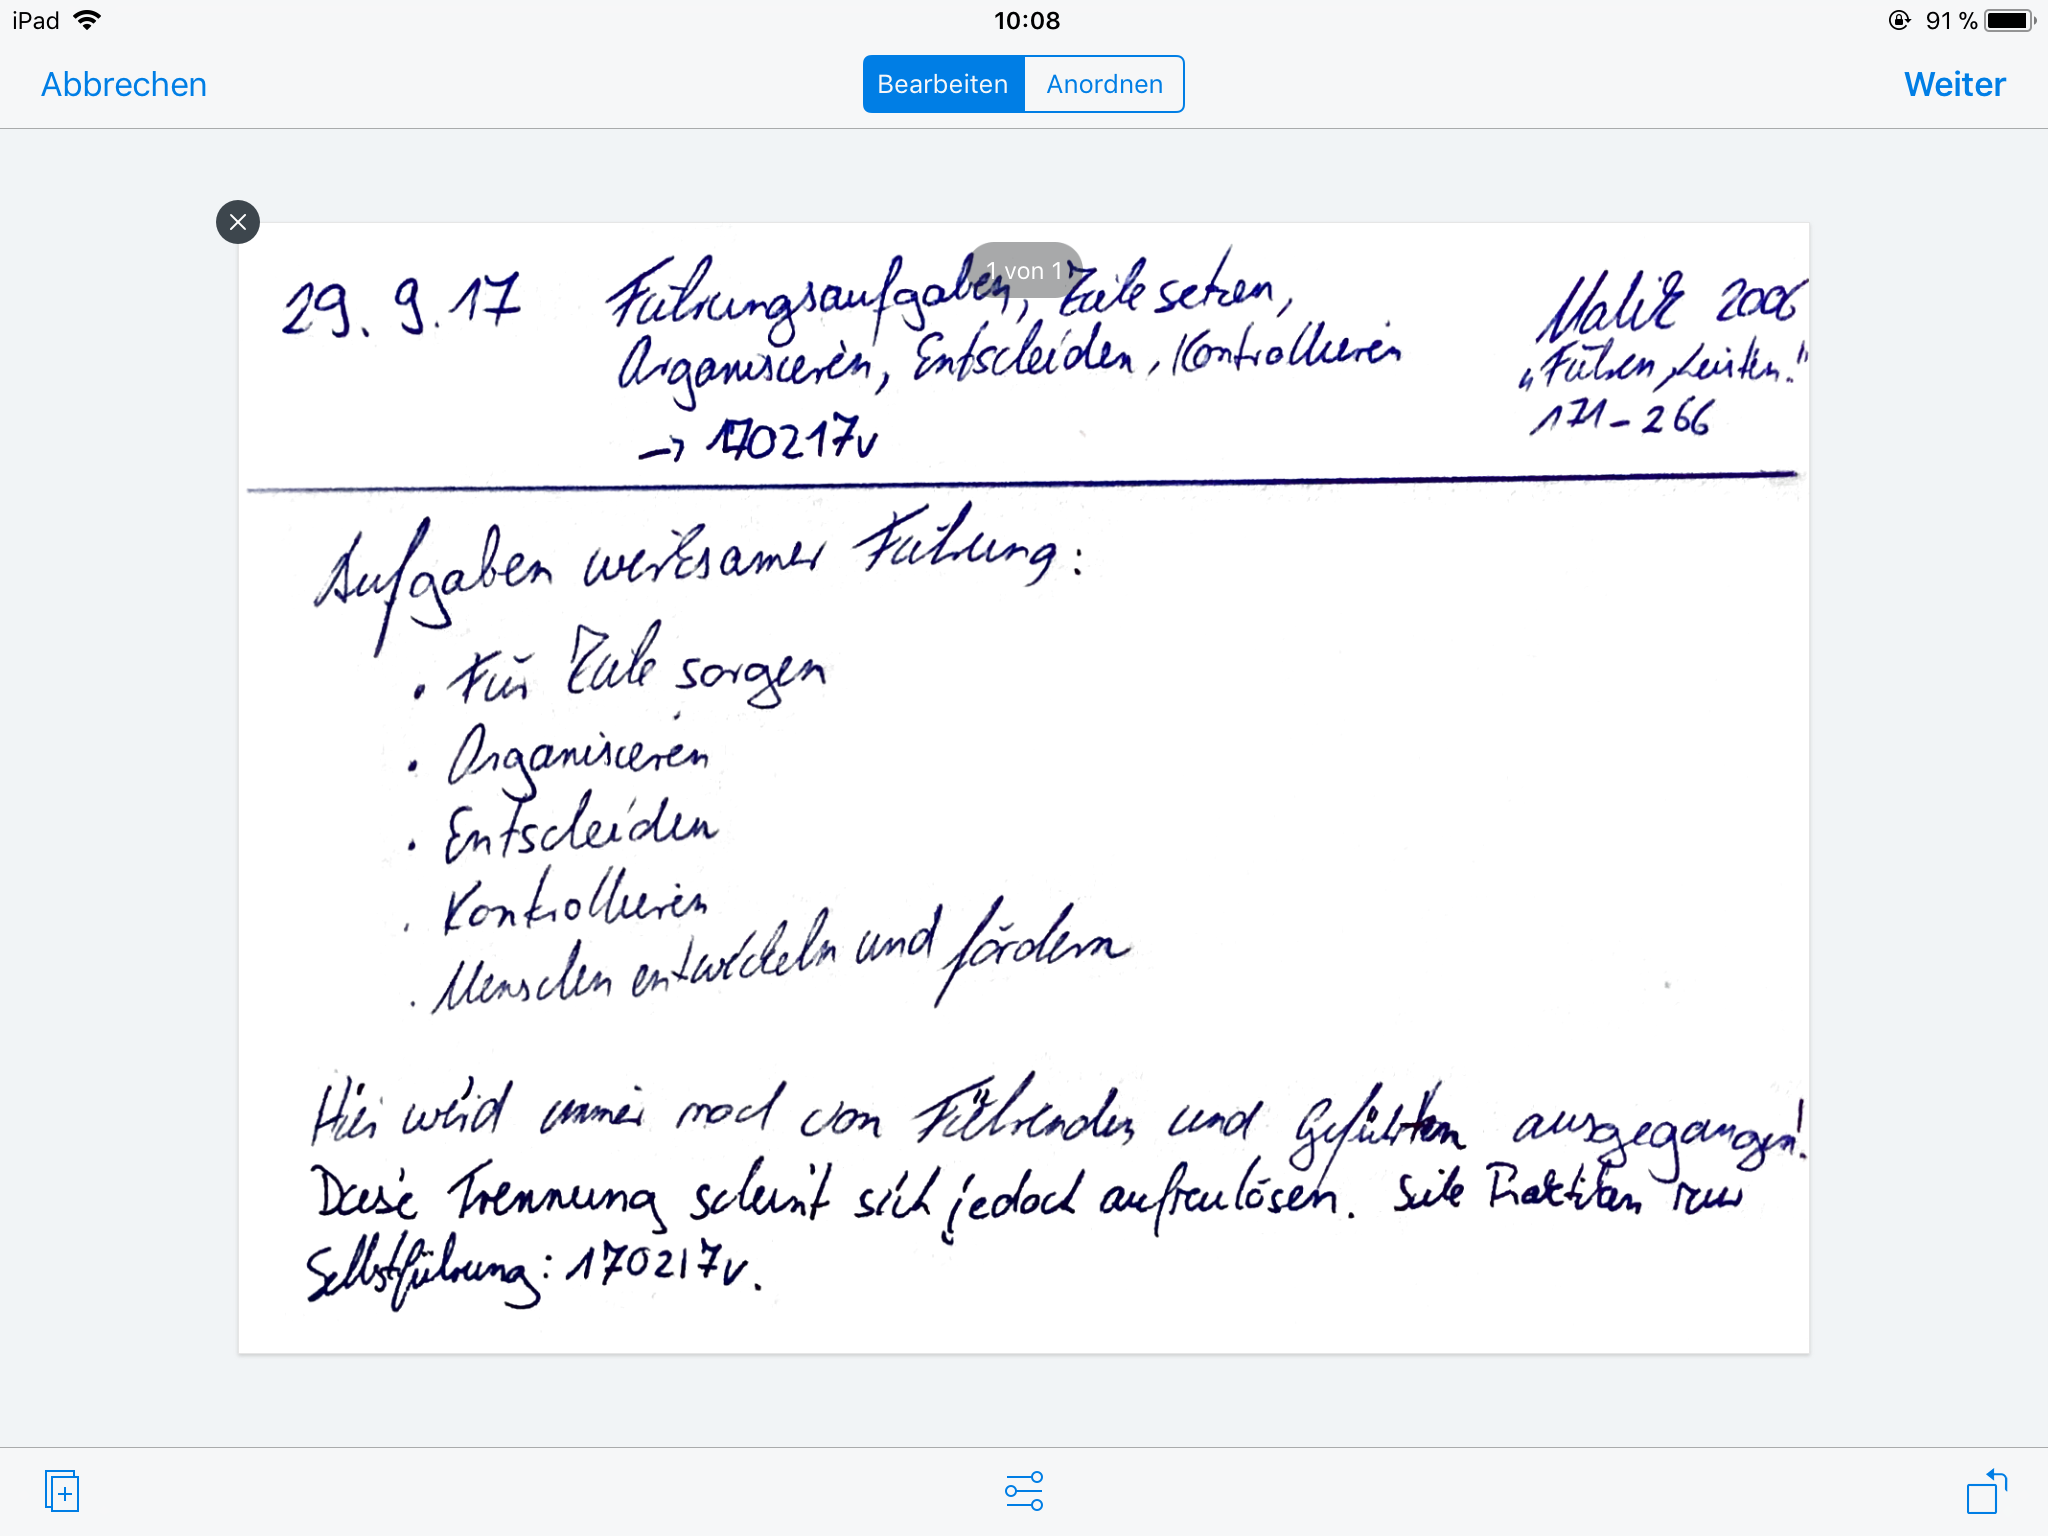 iPad 10:08 91 %
Abbrechen Bearbeiten Anordnen Weiter
1 von 1
29.9.17 Führungsaufgaben, Ziele setzen, Malik 2006
Organisieren, Entscheiden, Kontrollieren „Führen, Leisten.“
→ 170217v 171-266
Aufgaben wirksamer Führung:
• Für Ziele sorgen
• Organisieren
• Entscheiden
• Kontrollieren
• Menschen entwickeln und fördern
Hier wird immer noch von Führenden und Geführten ausgegangen!
Diese Trennung scheint sich jedoch aufzulösen. Siehe Praktiken zur
Selbstführung: 170217v.